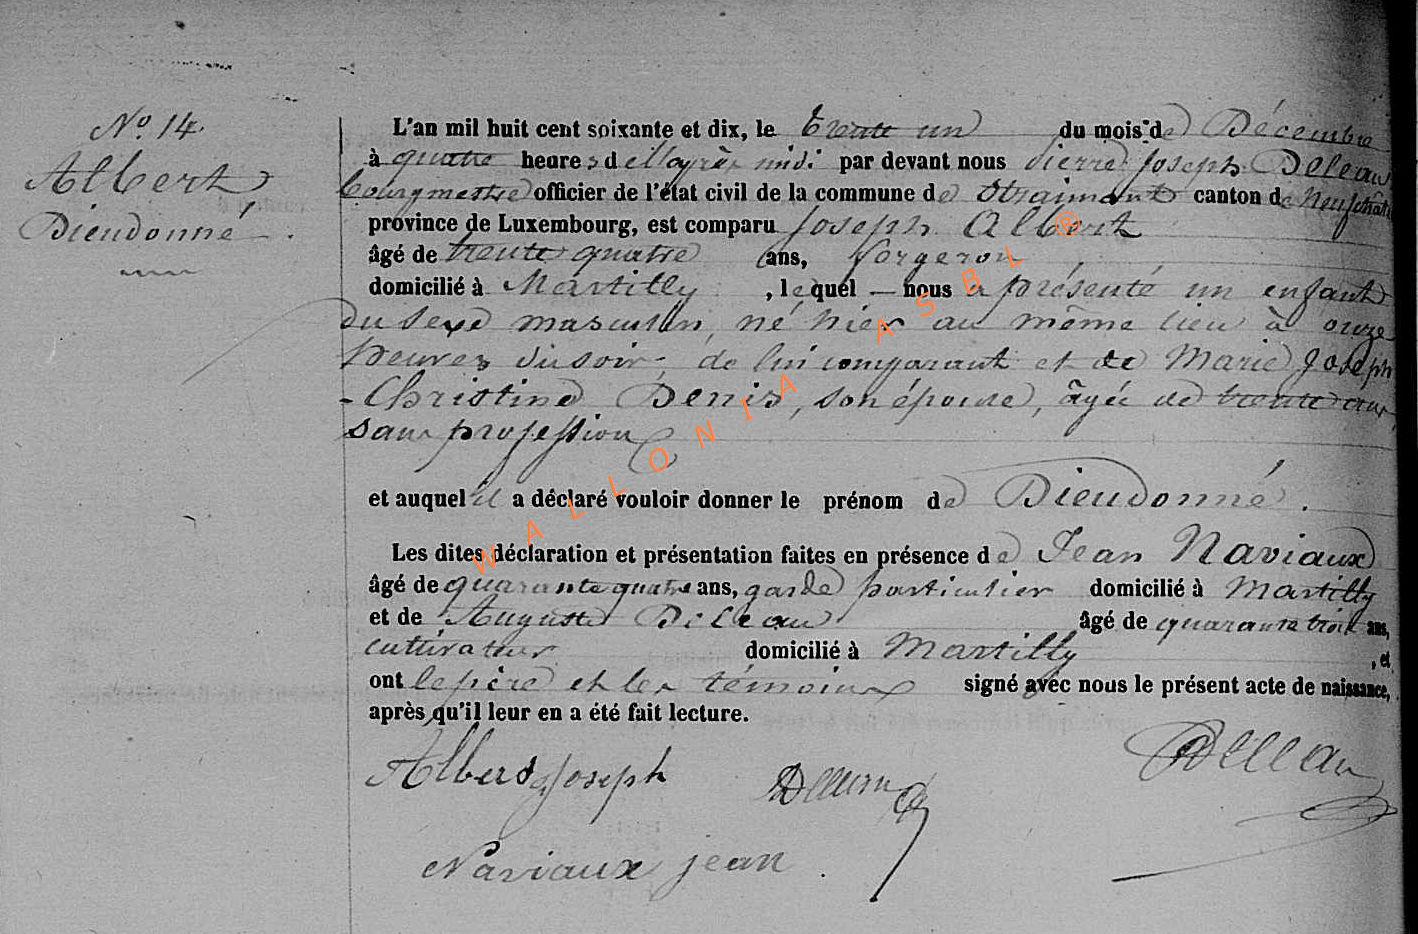 N.º 14.
Albert
Dieudonné.
L'an mil huit cent soixante et dix, le trente un du mois de Décembre
à quatre heures de l'après midi par devant nous Pierre Joseph Deleau
bourgmestre officier de l'état civil de la commune de Straimont canton de Neufchateau
province de Luxembourg, est comparu Joseph Albert
âgé de trente quatre ans, forgeron
domicilié à Martilly, lequel — nous a présenté un enfant
du sexe masculin, né hier au même lieu à onze
heures du soir, de lui comparant et de Marie Joseph
-Christine Denis, son épouse, âgée de trente ans,
sans profession
et auquel il a déclaré vouloir donner le prénom de Dieudonné.
Les dites déclaration et présentation faites en présence de Jean Naviaux
âgé de quarante quatre ans, garde particulier domicilié à Martilly
et de Auguste Deleau âgé de quarante trois ans,
cultivateur domicilié à Martilly, et
ont le père et les témoins signé avec nous le présent acte de naissance,
après qu'il leur en a été fait lecture.
Albert Joseph Deleau
Naviaux jean.
WALLONIA ASBL ®